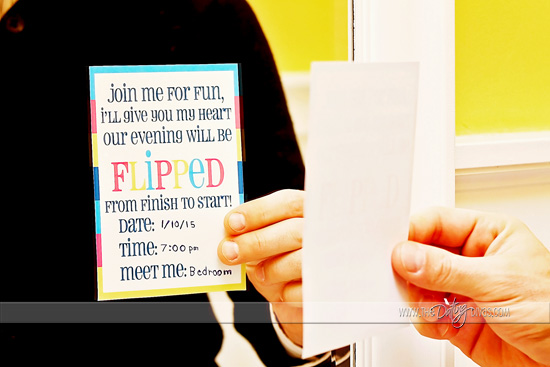 Join me for fun,
i'll give you my heart
our evening will be
FLiPPeD
from finish to start!
Date: 1/10/15
Time: 7:00 pm
meet me: Bedroom
www.TheDatingDivas.com